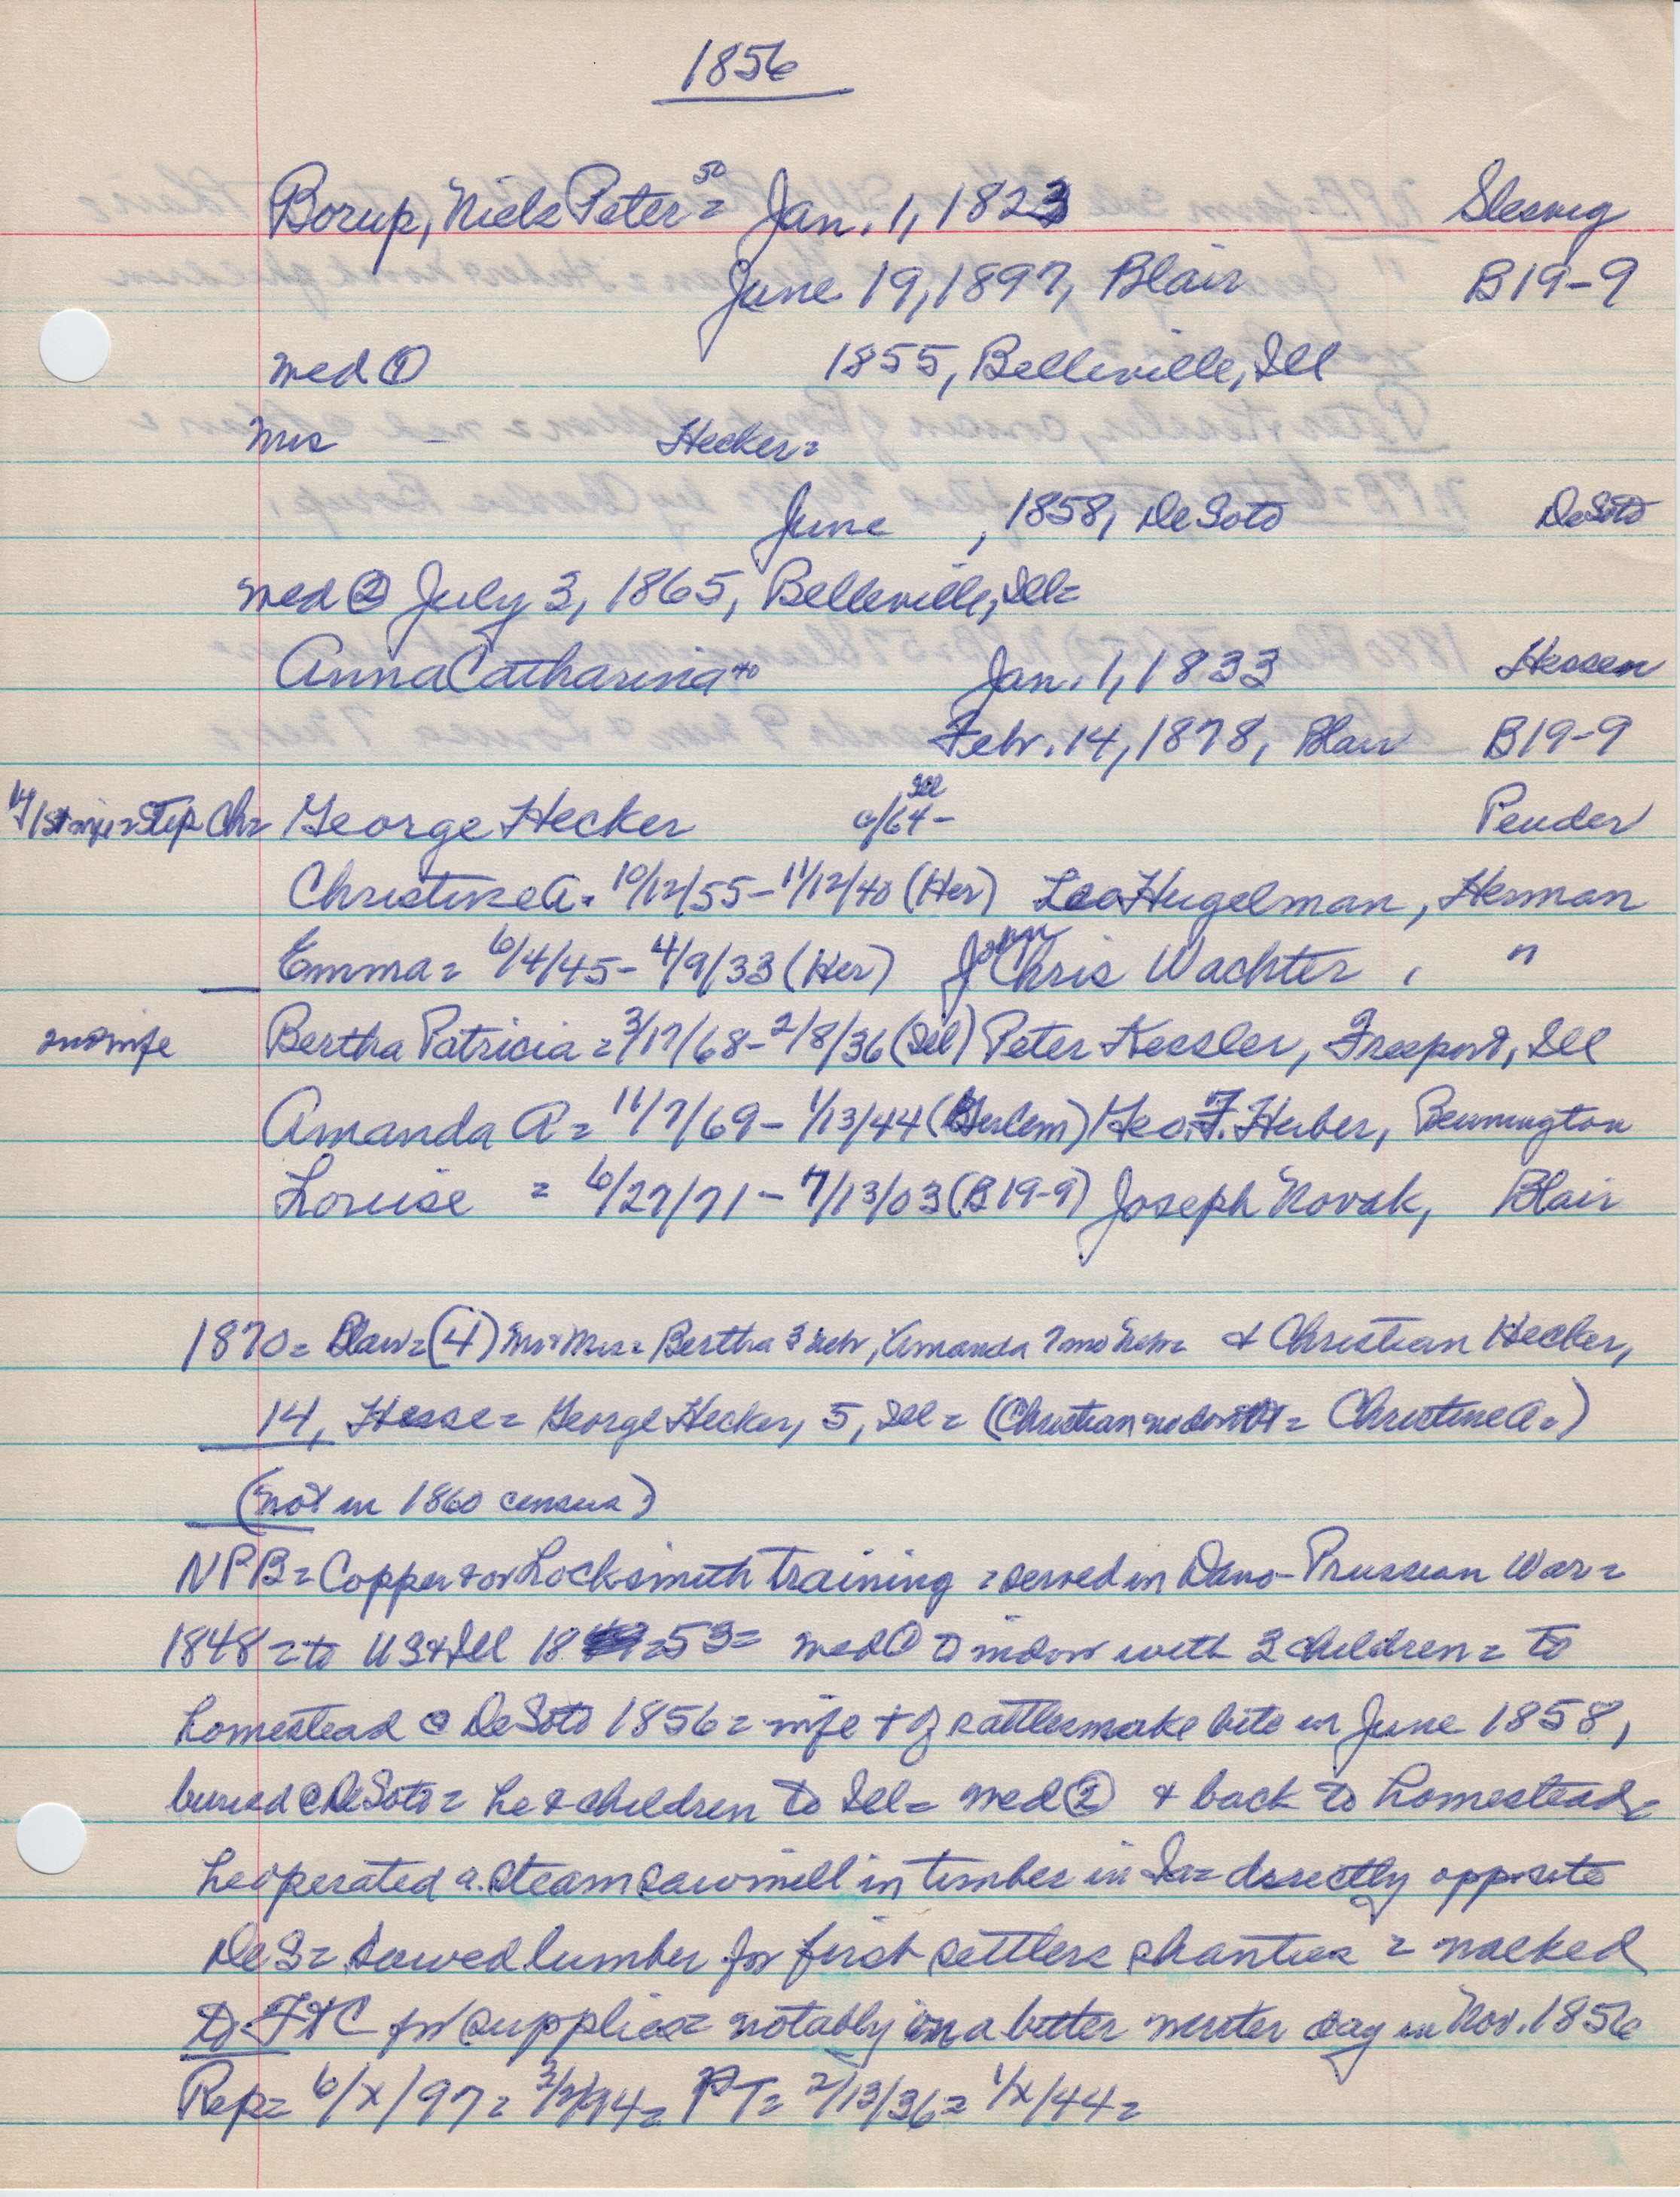 1856
Borup, Niels Peter = 50 Jan. 1, 1823 Slesvig
June 19, 1897, Blair B19-9
med ① 1855, Belleville, Ill
Mrs - Hecker =
June , 1858, DeSoto DeSoto
med ② July 3, 1865, Belleville, Ill =
Anna Catharina 40 Jan. 1, 1833 Hessen
Febr. 14, 1878, Blair B19-9
1st wife = Step Ch = George Hecker c/64 - Ill Pender
Christine A. = 10/12/55 - 11/12/40 (Her) Leo Hugelman, Herman
Emma = 6/4/45 - 4/9/33 (Her) John Chris Wachter , "
2nd wife Bertha Patricia = 3/17/68 - 2/8/36 (Ill) Peter Kessler, Freeport, Ill
Amanda A = 11/7/69 - 1/13/44 ( ) Geo. F. Huber, Bennington
Louise = 6/27/71 - 7/13/03 (B19-9) Joseph Novak, Blair
1870 = Blair = (4) Mr & Mrs = Bertha 3 Nebr, Amanda 7 mo Nebr = & Christian Hecker,
14, Hesse = George Hecker, 5, Ill = (Christian no doubt = Christine A =)
(not in 1860 census)
NPB = Copper & or Locksmith training = served in Dano-Prussian War =
1848 = to US & Ill 18 53 = med ① to widow with 2 children = to
homestead @ DeSoto 1856 = wife + of rattlesnake bite in June 1858,
buried @ DeSoto = he & children to Ill = med ② & back to homestead =
he operated a steam sawmill in timber in Ia = directly opposite
DeS = sawed lumber for first settlers shanties = walked
to FtC for supplies = notably on a bitter winter day in Nov. 1856
Rep = 6/x/97 = 3/2/94 = PT = 2/13/36 = 1/x/44 =